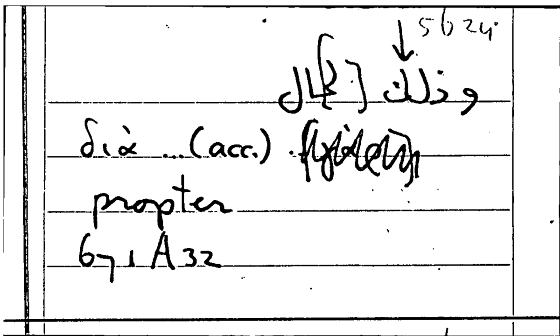 5624
وذلك [ ] ال
διὰ ... (acc.)
propter
671 A 32